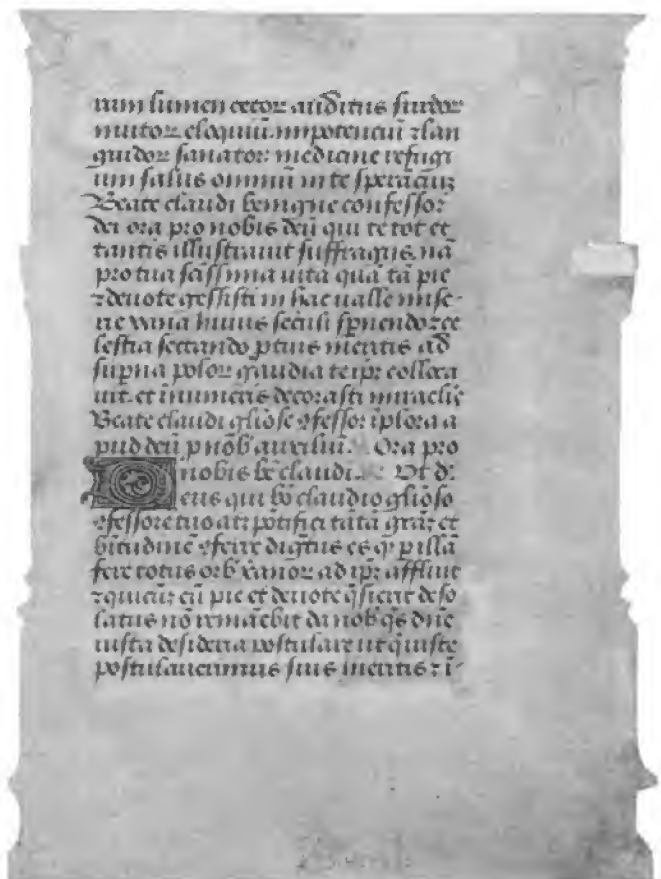 rum lumen cecor auditus surdoꝝ
mutoꝝ eloquiū. impotenciū ⁊ lan
guidoꝝ sanatoꝝ medicine refugi
um salus omniū in te speraciuꝫ
Beate claudi benigne confessor
dei ora pro nobis deū qui te tot et
tantis illustrauit suffragijs. nā
pro tua scīssima uita quā tā pie
⁊ deuote gessisti in hac ualle mise-
rie vana huius seculi spnendo ⁊ ce
lestia sectando ptuis meritis ad
supna poloꝝ gaudia te ipe colloca
uit. et inumeris decorasti miraclis
Beate claudi gliōse ꝯfessor iplora a
pud deū p nōb auxiliū. Ora pro
nobis bē claudi. Vt d:
eus qui bō claudio gliōso
ꝯfessore tuo atꝫ pōtifici tātā grāꝫ et
bītudinē ꝯferre digtus es qꝫ p illā
fere totus orb ad ipꝫ affluit
⁊ quicūꝫ cū pie et deuote qsierit deso
latus nō remāebit da nob qs dne
iusta desideria postulare ut q iuste
postulauerimus suis meritis ⁊ ī-